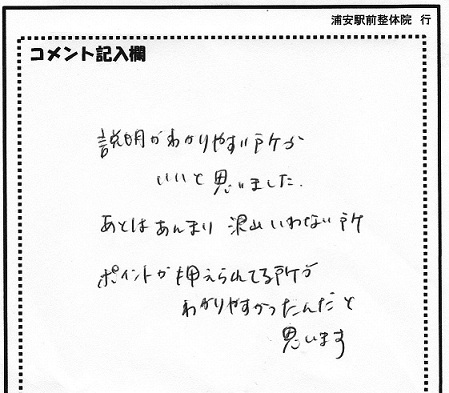 浦安駅前整体院 行
コメント記入欄
説明がわかりやすい所が
いいと思いました.
あとはあんまり 沢山いわない所
ポイントが押えられてる所が
わかりやすかったんだと
思います